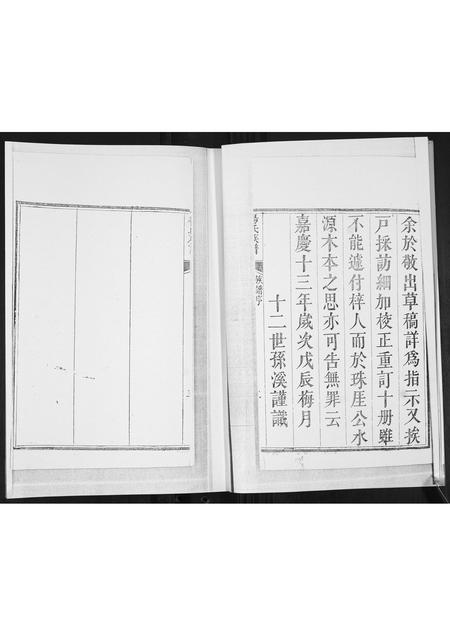 余於敬出草稿詳為指示又挨
戶採訪細加校正重訂十册雖
不能遽付梓人而於珠厓公水
源木本之思亦可告無罪云
嘉慶十三年歲次戊辰梅月
十二世孫溪謹識
氏族譜
族譜序